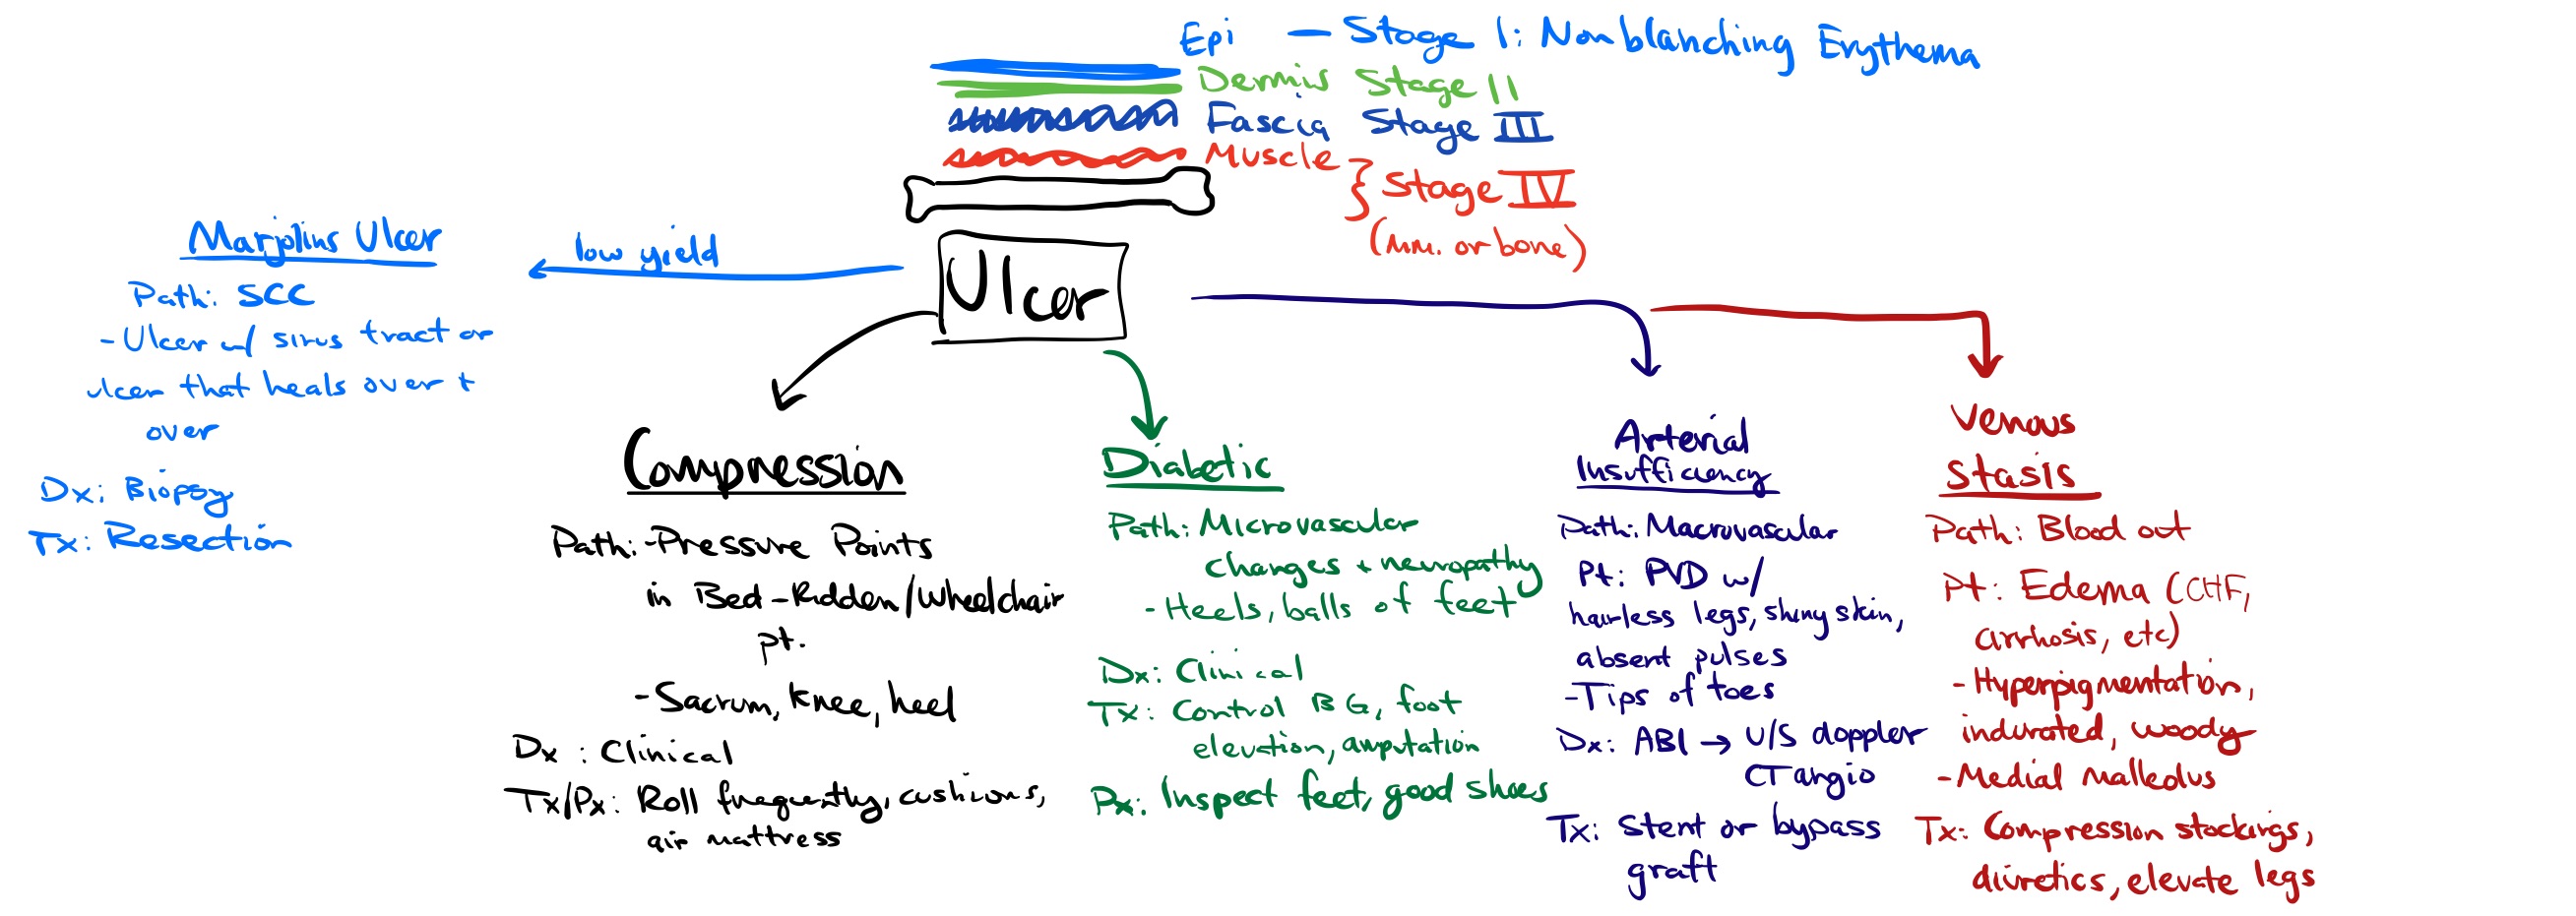 Epi — Stage 1: Nonblanching Erythema
Dermis Stage II
Fascia Stage III
Muscle
} Stage IV
(mm. or bone)
Ulcer
low yield
Marjolins Ulcer
Path: SCC
- Ulcer w/ sinus tract or
ulcer that heals over +
over
Dx: Biopsy
Tx: Resection
Compression
Path: -Pressure Points
in Bed-Ridden/Wheelchair
pt.
- Sacrum, knee, heel
Dx: Clinical
Tx/Px: Roll frequently, cushions,
air mattress
Diabetic
Path: Microvascular
changes + neuropathy
- Heels, balls of feet
Dx: Clinical
Tx: Control BG, foot
elevation, amputation
Px: Inspect feet, good shoes
Arterial
Insufficiency
Path: Macrovascular
Pt: PVD w/
hairless legs, shiny skin,
absent pulses
- Tips of toes
Dx: ABI → U/S doppler
CT angio
Tx: Stent or bypass
graft
Venous
Stasis
Path: Blood out
Pt: Edema (CHF,
cirrhosis, etc)
- Hyperpigmentation,
indurated, woody
- Medial Malleolus
Tx: Compression stockings,
diuretics, elevate legs